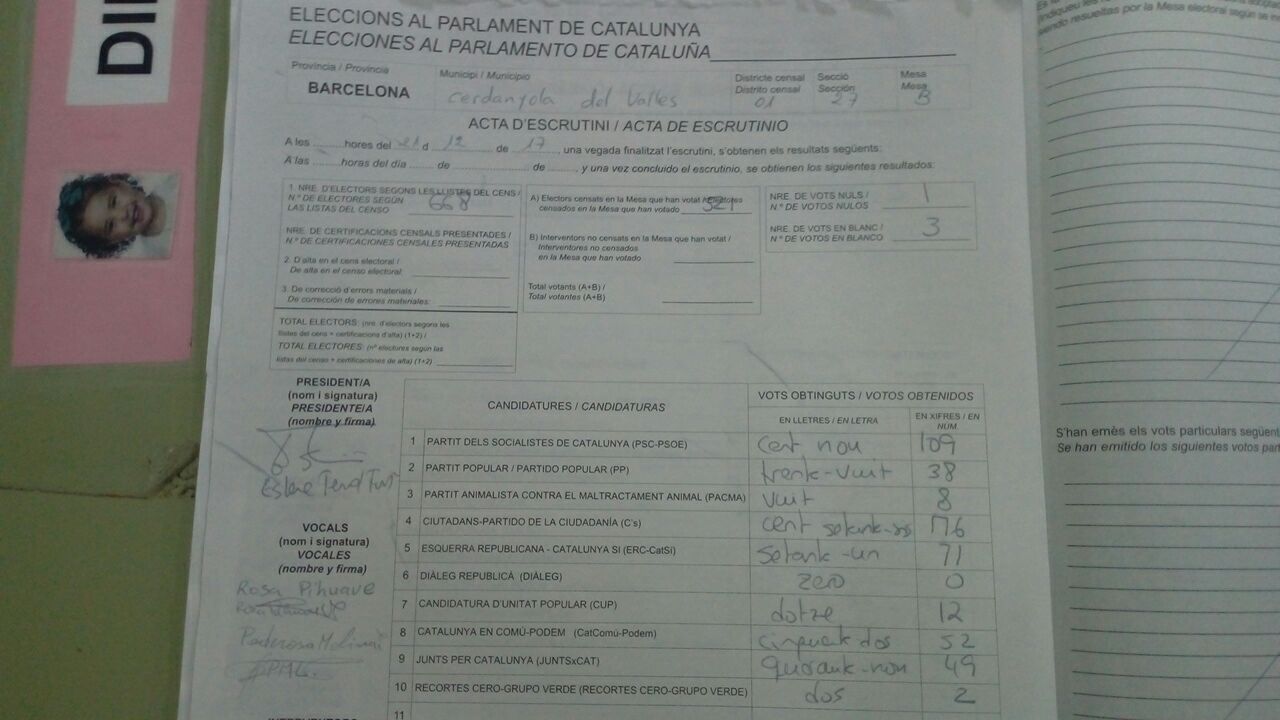 DI
ELECCIONS AL PARLAMENT DE CATALUNYA
ELECCIONES AL PARLAMENTO DE CATALUÑA
Província / Provincia
Municipi / Municipio
Districte censal
Distrito censal
Secció
Sección
Mesa
Mesa
BARCELONA
Cerdanyola del Valles
01
27
B
ACTA D'ESCRUTINI / ACTA DE ESCRUTINIO
A les ......... hores del 21 d 12 de 17, una vegada finalitzat l'escrutini, s'obtenen els resultats següents:
A las ......... horas del día ......... de ......... de ........., y una vez concluido el escrutinio, se obtienen los siguientes resultados:
1. NRE. D'ELECTORS SEGONS LES LLISTES DEL CENS /
N.º DE ELECTORES SEGÚN
LAS LISTAS DEL CENSO
668
NRE. DE CERTIFICACIONS CENSALS PRESENTADES /
N.º DE CERTIFICACIONES CENSALES PRESENTADAS
2. D'alta en el cens electoral /
De alta en el censo electoral:
3. De correcció d'errors materials /
De corrección de errores materiales:
TOTAL ELECTORS: (nre. d'electors segons les
llistes del cens + certificacions d'alta) (1+2) /
TOTAL ELECTORES: (nº electores según las
listas del censo + certificaciones de alta) (1+2)
A) Electors censats en la Mesa que han votat / Electores
censados en la Mesa que han votado 521
B) Interventors no censats en la Mesa que han votat /
Interventores no censados
en la Mesa que han votado
Total votants (A+B) /
Total votantes (A+B)
NRE. DE VOTS NULS /
N.º DE VOTOS NULOS
1
NRE. DE VOTS EN BLANC /
N.º DE VOTOS EN BLANCO
3
PRESIDENT/A
(nom i signatura)
PRESIDENTE/A
(nombre y firma)
VOCALS
(nom i signatura)
VOCALES
(nombre y firma)
Rosa Pihuave
CANDIDATURES / CANDIDATURAS
VOTS OBTINGUTS / VOTOS OBTENIDOS
EN LLETRES / EN LETRA
EN XIFRES / EN NÚM.
1 PARTIT DELS SOCIALISTES DE CATALUNYA (PSC-PSOE) cent nou 109
2 PARTIT POPULAR / PARTIDO POPULAR (PP) trenta-vuit 38
3 PARTIT ANIMALISTA CONTRA EL MALTRACTAMENT ANIMAL (PACMA) vuit 8
4 CIUTADANS-PARTIDO DE LA CIUDADANÍA (C's) cent setanta-sis 176
5 ESQUERRA REPUBLICANA - CATALUNYA SI (ERC-CatSí) setanta-un 71
6 DIÀLEG REPUBLICÀ (DIÀLEG) zero 0
7 CANDIDATURA D'UNITAT POPULAR (CUP) dotze 12
8 CATALUNYA EN COMÚ-PODEM (CatComú-Podem) cinquanta dos 52
9 JUNTS PER CATALUNYA (JUNTSxCAT) quaranta-nou 49
10 RECORTES CERO-GRUPO VERDE (RECORTES CERO-GRUPO VERDE) dos 2
11
(indiqueu les
siendo resueltas por la Mesa electoral según se
S'han emès els vots particulars següent
Se han emitido los siguientes votos par